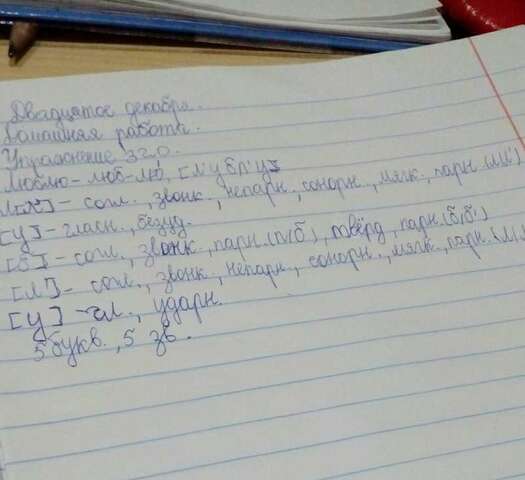 Двадцатое декабря.
Домашняя работа.
Упражнение 320.
Люблю - люб-лю, [л'убл'у]
[л'] - согл., звонк., непарн., сонорн., мягк., парн (л/л')
[у] - гласн., безуд.
[б] - согл., звонк., парн. (п/б), твёрд., парн. (б/б')
[л'] - согл., звонк., непарн., сонорн., мягк., парн. (л/л
[у] - гл., ударн.
5 букв., 5 зв.